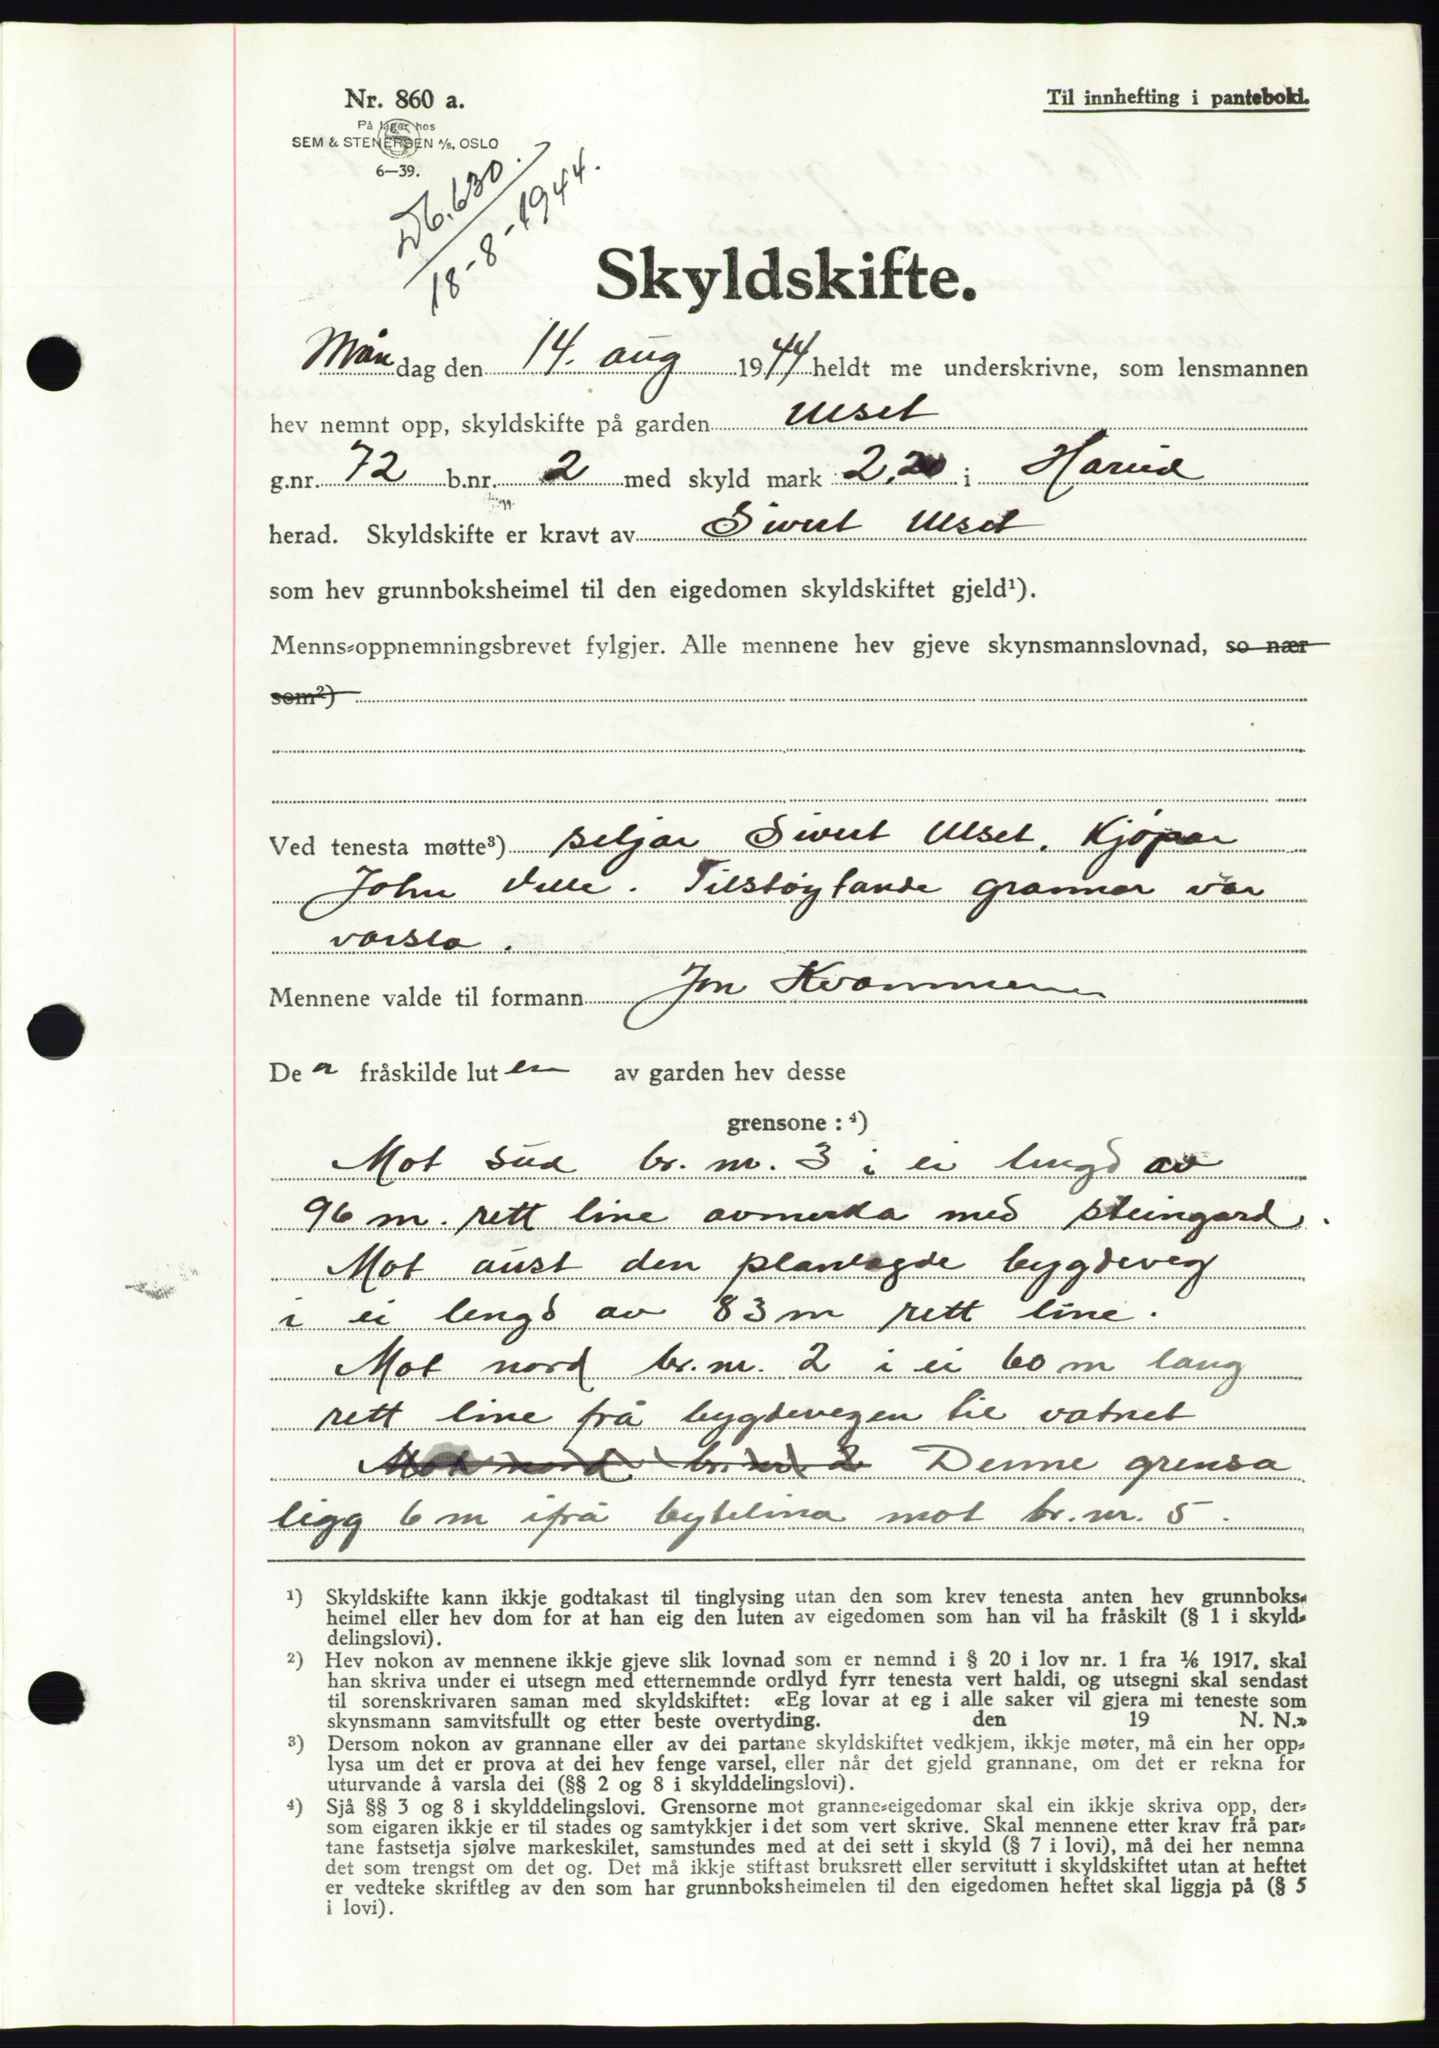 Nr. 860 a.
Til innhefting i panteboki.
På lager hos
S
SEM & STENERSEN A/S, OSLO
6—39.
Db. 630.
18-8-1944.
Skyldskifte.
Mån dag den 14. aug 1944 heldt me underskrivne, som lensmannen
hev nemnt opp, skyldskifte på garden Ulset
g.nr. 72 b.nr. 2 med skyld mark 2,20 i Hareid
herad. Skyldskifte er kravt av Sivert Ulset
som hev grunnboksheimel til den eigedomen skyldskiftet gjeld¹).
Menns-oppnemningsbrevet fylgjer. Alle mennene hev gjeve skynsmannslovnad, so nær
som²)
Ved tenesta møtte³) seljar Sivert Ulset. Kjöpar
John Velle. Tilstøytande grannar var
varsla.
Mennene valde til formann Jon Kvammen
De n fråskilde lut en av garden hev desse
grensone : ⁴)
Mot sud br. nr. 3 i ei lengd av
96 m. rett line avmerka med steingard.
Mot aust den planlagde bygdeveg
i ei lengd av 83 m rett line.
Mot nord br. nr. 2 i ei 60 m lang
rett line frå bygdevegen til vatnet
Mot nord br. nr. 2 Denne grensa
ligg 6 m ifrå bytelina mot br. nr. 5.
¹) Skyldskifte kann ikkje godtakast til tinglysing utan den som krev tenesta anten hev grunnboks-
heimel eller hev dom for at han eig den luten av eigedomen som han vil ha fråskilt (§ 1 i skyld-
delingslovi).
²) Hev nokon av mennene ikkje gjeve slik lovnad som er nemnd i § 20 i lov nr. 1 fra 1/6 1917, skal
han skriva under ei utsegn med etternemnde ordlyd fyrr tenesta vert haldi, og utsegni skal sendast
til sorenskrivaren saman med skyldskiftet: «Eg lovar at eg i alle saker vil gjera mi teneste som
skynsmann samvitsfullt og etter beste overtyding. den 19 N. N.»
³) Dersom nokon av grannane eller av dei partane skyldskiftet vedkjem, ikkje møter, må ein her opp-
lysa um det er prova at dei hev fenge varsel, eller når det gjeld grannane, om det er rekna for
uturvande å varsla dei (§§ 2 og 8 i skylddelingslovi).
⁴) Sjå §§ 3 og 8 i skylddelingslovi. Grensorne mot granne-eigedomar skal ein ikkje skriva opp, der-
som eigaren ikkje er til stades og samtykkjer i det som vert skrive. Skal mennene etter krav frå par-
tane fastsetja sjølve markeskilet, samstundes med at dei sett i skyld (§ 7 i lovi), må dei her nemna
det som trengst om det og. Det må ikkje stiftast bruksrett eller servitutt i skyldskiftet utan at heftet
er vedteke skriftleg av den som har grunnboksheimelen til den eigedomen heftet skal liggja på (§ 5
i lovi).